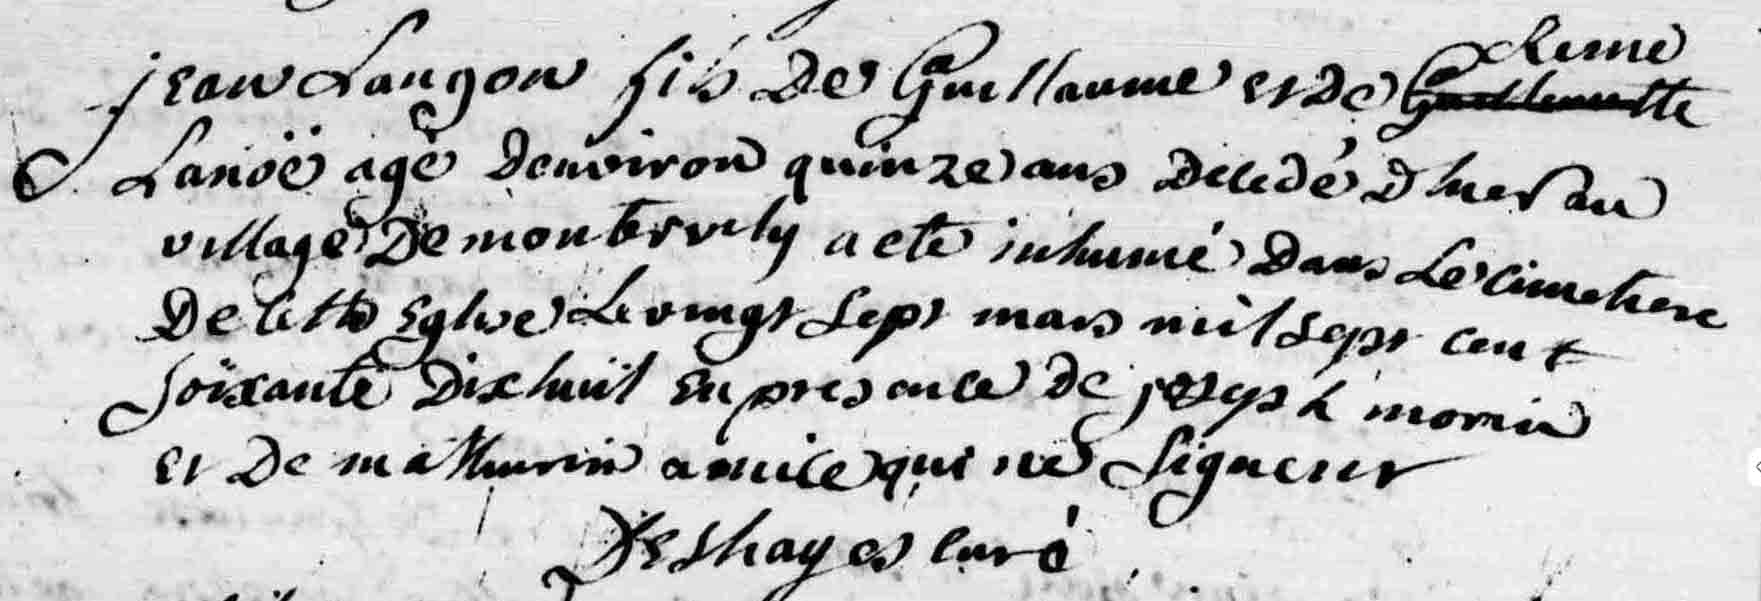 Reine
jean Langon fils De Guillaume et de Guillemette
Lanoë agé denviron quinze ans decedé dhier au
village De montervily a eté inhumé dans Le cimetiere
De cette Eglise Le vingt sept mars mil sept cent
soixante dixhuit En presence de joseph morin
et De mathurin amice qui ne signent
Deshayes curé